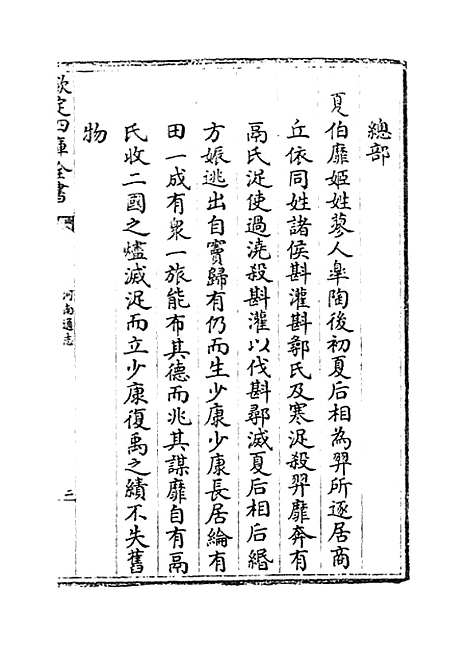 總部
夏伯靡姬姓蓼人臯陶後初夏后相為羿所逐居商
丘依同姓諸侯斟灌斟鄩氏及寒浞殺羿靡奔有
鬲氏浞使過澆殺斟灌以伐斟鄩滅夏后相后緡
方娠逃出自竇歸有仍而生少康少康長居綸有
田一成有衆一旅能布其德而兆其謀靡自有鬲
氏收二國之燼滅浞而立少康復禹之績不失舊
物
欽定四庫全書
河南通志
三